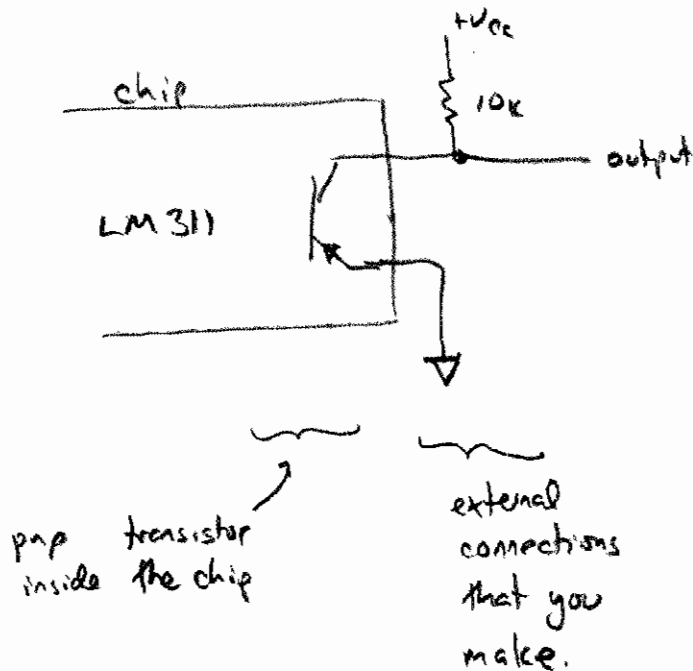 +Vcc
chip
10K
output
LM 311
pnp transistor
inside the chip
external
connections
that you
make.